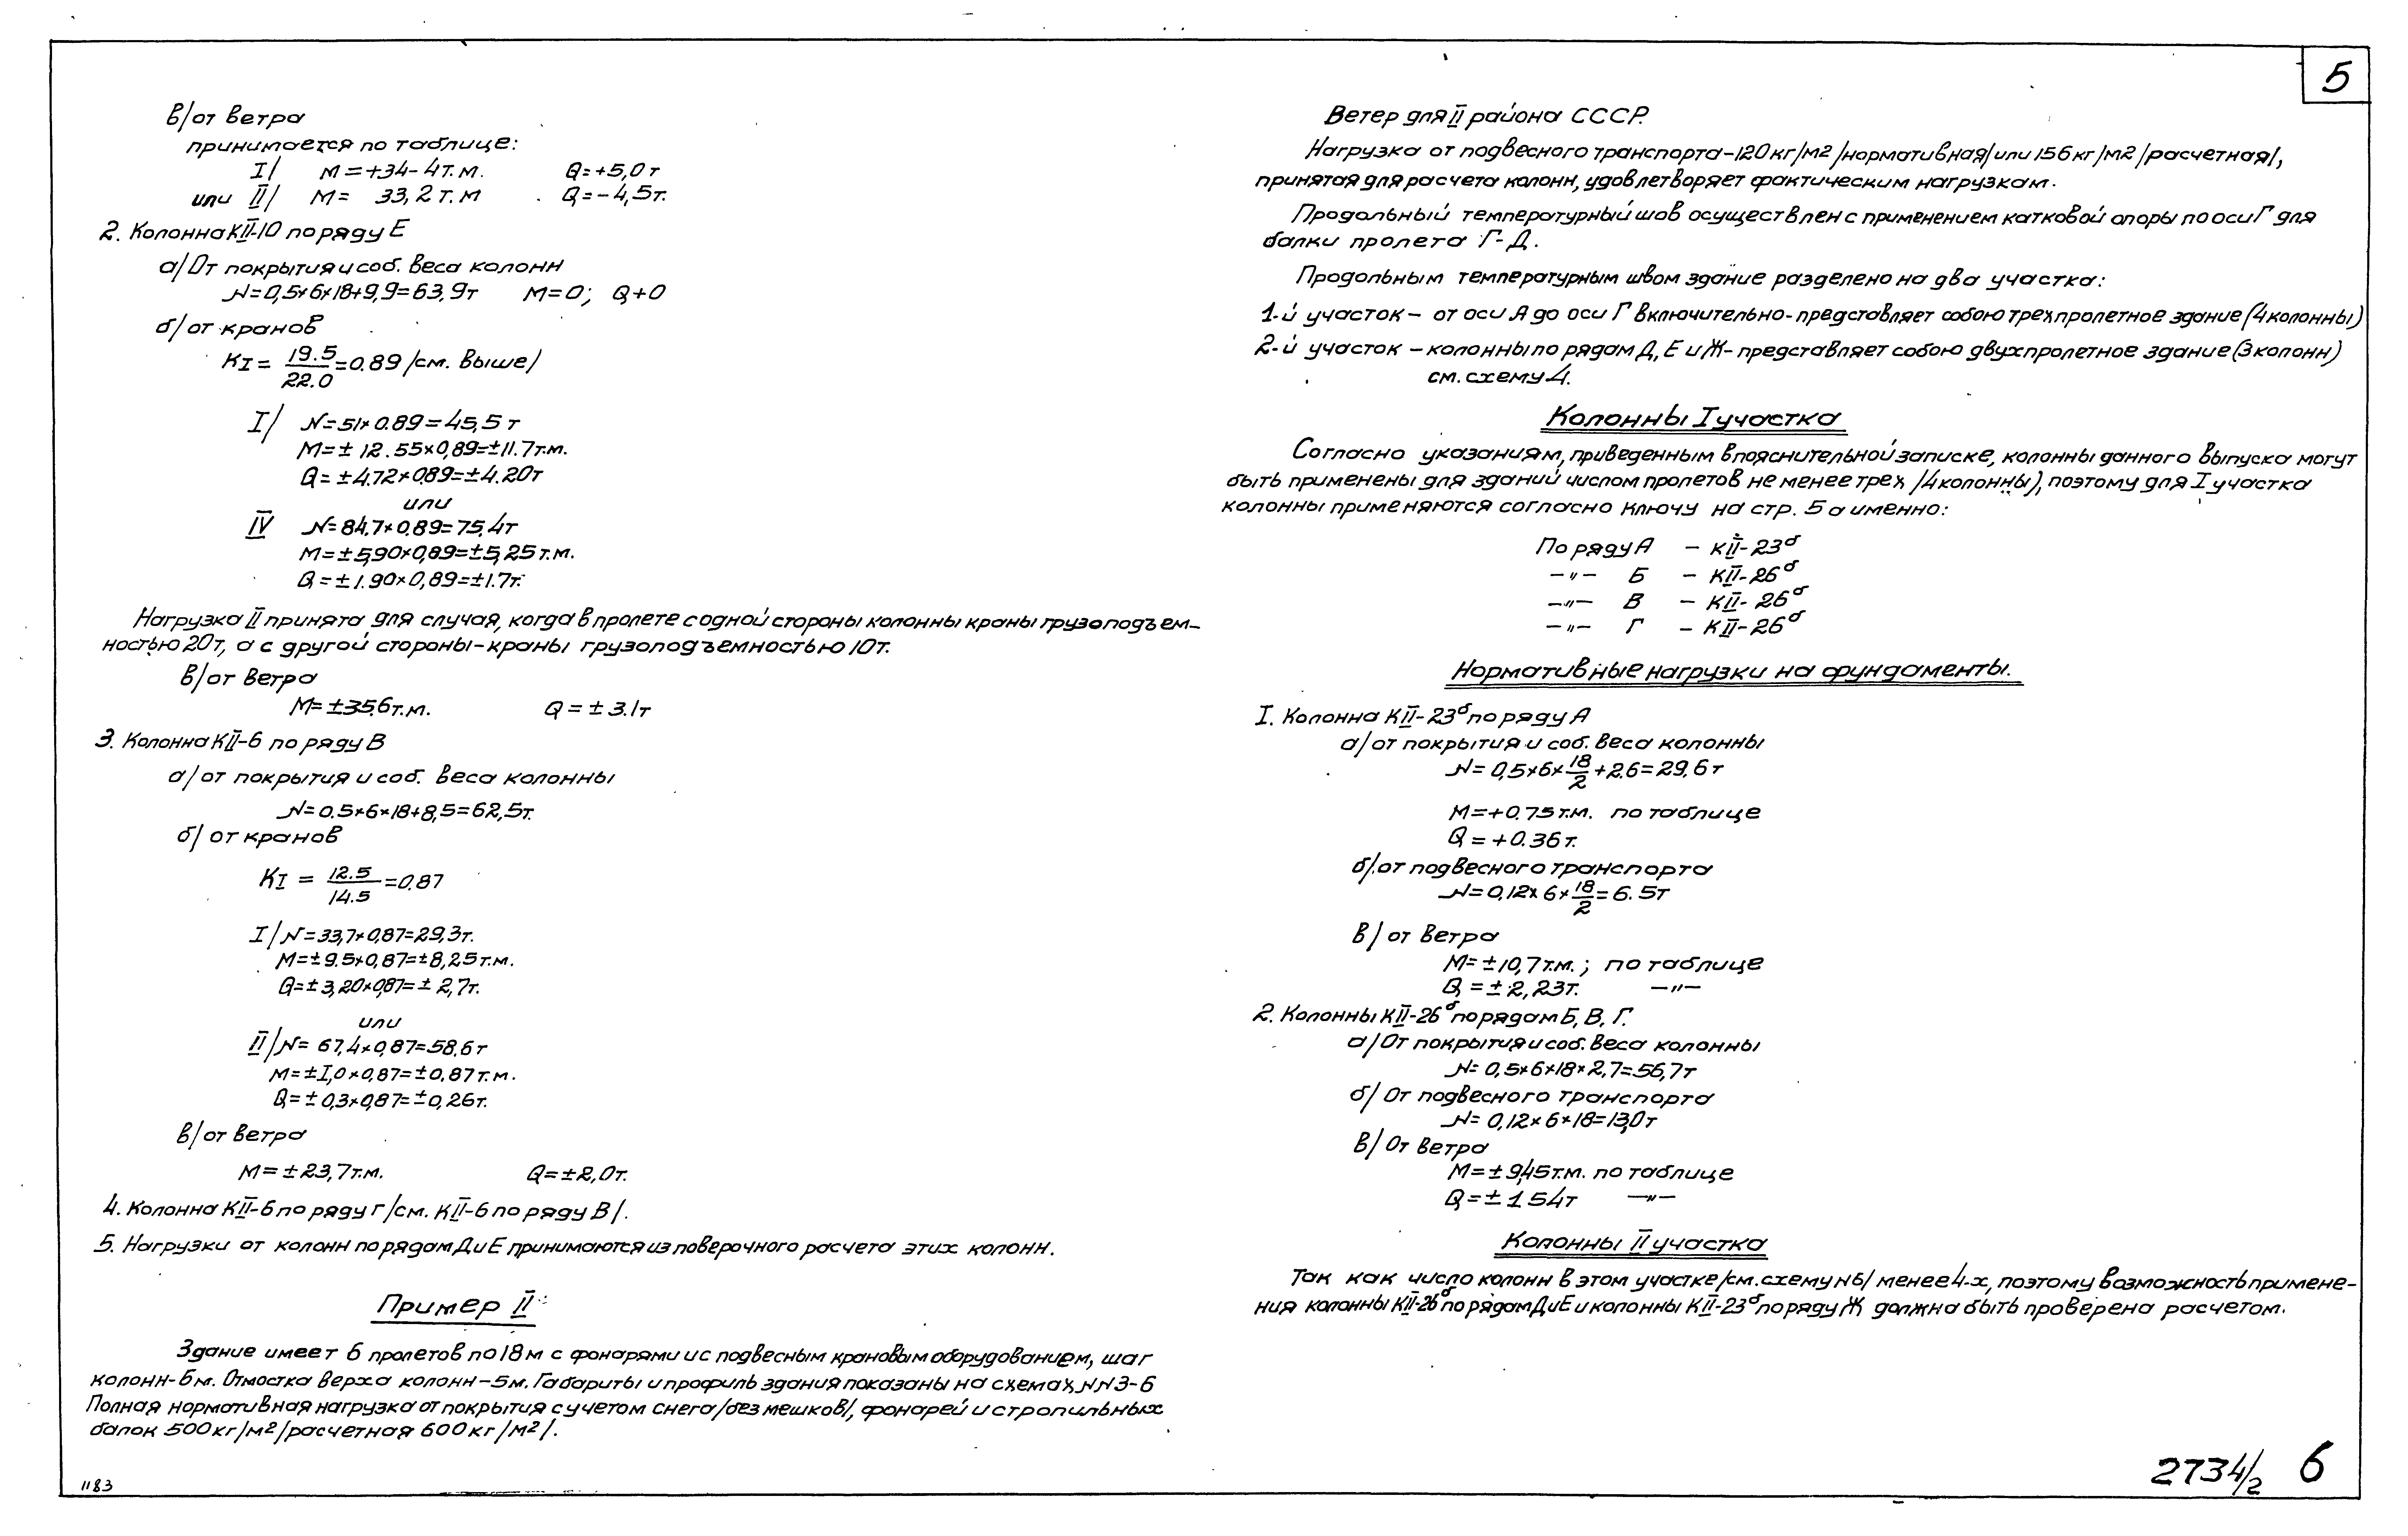 5
в/от ветра
принимается по таблице:
I/ М=+34-4т.м. Q=+5,0т
или II/ М= 33,2т.м Q=-4,5т.
2. Колонна КII-10 по ряду Е
а/От покрытия и соб. веса колонн
N=0,5×6×18+9,9=63,9т М=0; Q+0
б/от кранов
KI = 19.5/22.0 =0.89 /см. выше/
I/ N=51×0.89=45,5т
М=±12.55×0,89=±11.7т.м.
Q=±4.72×0.89=±4.20т
или
IV N=84.7×0.89=75.4т
М=±5,90×0,89=±5,25т.м.
Q=±1.90×0,89=±1.7т.
Нагрузка II принята для случая, когда в пролете с одной стороны колонны краны грузоподъем-
ностью 20т, а с другой стороны-краны грузоподъемностью 10т.
в/от ветра
М=±35.6т.м. Q=±3.1т
3. Колонна КII-6 по ряду В
а/от покрытия и соб. веса колонны
N=0.5×6×18+8,5=62,5т.
б/ от кранов
KI = 12.5/14.5 =0.87
I/N=33,7×0,87=29,3т.
М=±9.5×0,87=±8,25т.м.
Q=±3,20×0,87=± 2,7т.
или
II/N= 67,4×0,87=58.6т
М=±1,0×0,87=±0,87т.м.
Q=±0,3×0,87=±0,26т.
в/от ветра
М=±23,7т.м. Q=±2,0т.
4. Колонна КII-6 по ряду Г/см. КII-6 по ряду В/.
5. Нагрузки от колонн по рядам Д и Е принимаются из поверочного расчета этих колонн.
Пример II
Здание имеет 6 пролетов по 18м с фонарями и с подвесным крановым оборудованием, шаг
колонн-6м. Отмостка верха колонн-5м. Габариты и профиль здания показаны на схемах NN3-6
Полная нормативная нагрузка от покрытия с учетом снега/без мешков/, фонарей и стропильных
балок 500кг/м2/расчетная 600кг/м2/.
1183
Ветер для II района СССР.
Нагрузка от подвесного транспорта-120кг/м2/нормативная/или 156кг/м2/расчетная/,
принятая для расчета колонн, удовлетворяет фактическим нагрузкам.
Продольный температурный шов осуществлен с применением катковой опоры по оси Г для
балки пролета Г-Д.
Продольным температурным швом здание разделено на два участка:
1-й участок - от оси А до оси Г включительно-представляет собою трехпролетное здание (4 колонны)
2-й участок - колонны по рядам Д, Е и Ж-представляет собою двухпролетное здание (3 колонн)
см. схему 4.
Колонны I участка
Согласно указаниям, приведенным в пояснительной записке, колонны данного выпуска могут
быть применены для зданий числом пролетов не менее трех /4 колонны), поэтому для I участка
колонны применяются согласно ключу на стр. 5 а именно:
По ряду А - КII-23б
-"- Б - КII-26б
-"- В - КII-26б
-"- Г - КII-26б
Нормативные нагрузки на фундаменты.
I. Колонна КII-23б по ряду А
а/от покрытия и соб. веса колонны
N= 0,5×6×18/2+2.6=29.6т
М=+0.75т.м. по таблице
Q=+0.36т.
б/.от подвесного транспорта
N=0,12×6×18/2=6.5т
в/ от ветра
М=±10,7т.м.; по таблице
Q=±2,23т. -"-
2. Колонны КII-26б по рядам Б, В, Г.
а/От покрытия и соб. веса колонны
N= 0,5×6×18×2,7=56,7т
б/ От подвесного транспорта
N= 0,12×6×18=13,0т
в/ От ветра
М=±9,45т.м. по таблице
Q=±1.54т -"-
Колонны II участка
Так как число колонн в этом участке/см. схему N6/ менее 4-х, поэтому возможность примене-
ния колонны КII-26б по рядам Д и Е и колонны КII-23б по ряду Ж должна быть проверена расчетом.
2734/2 6